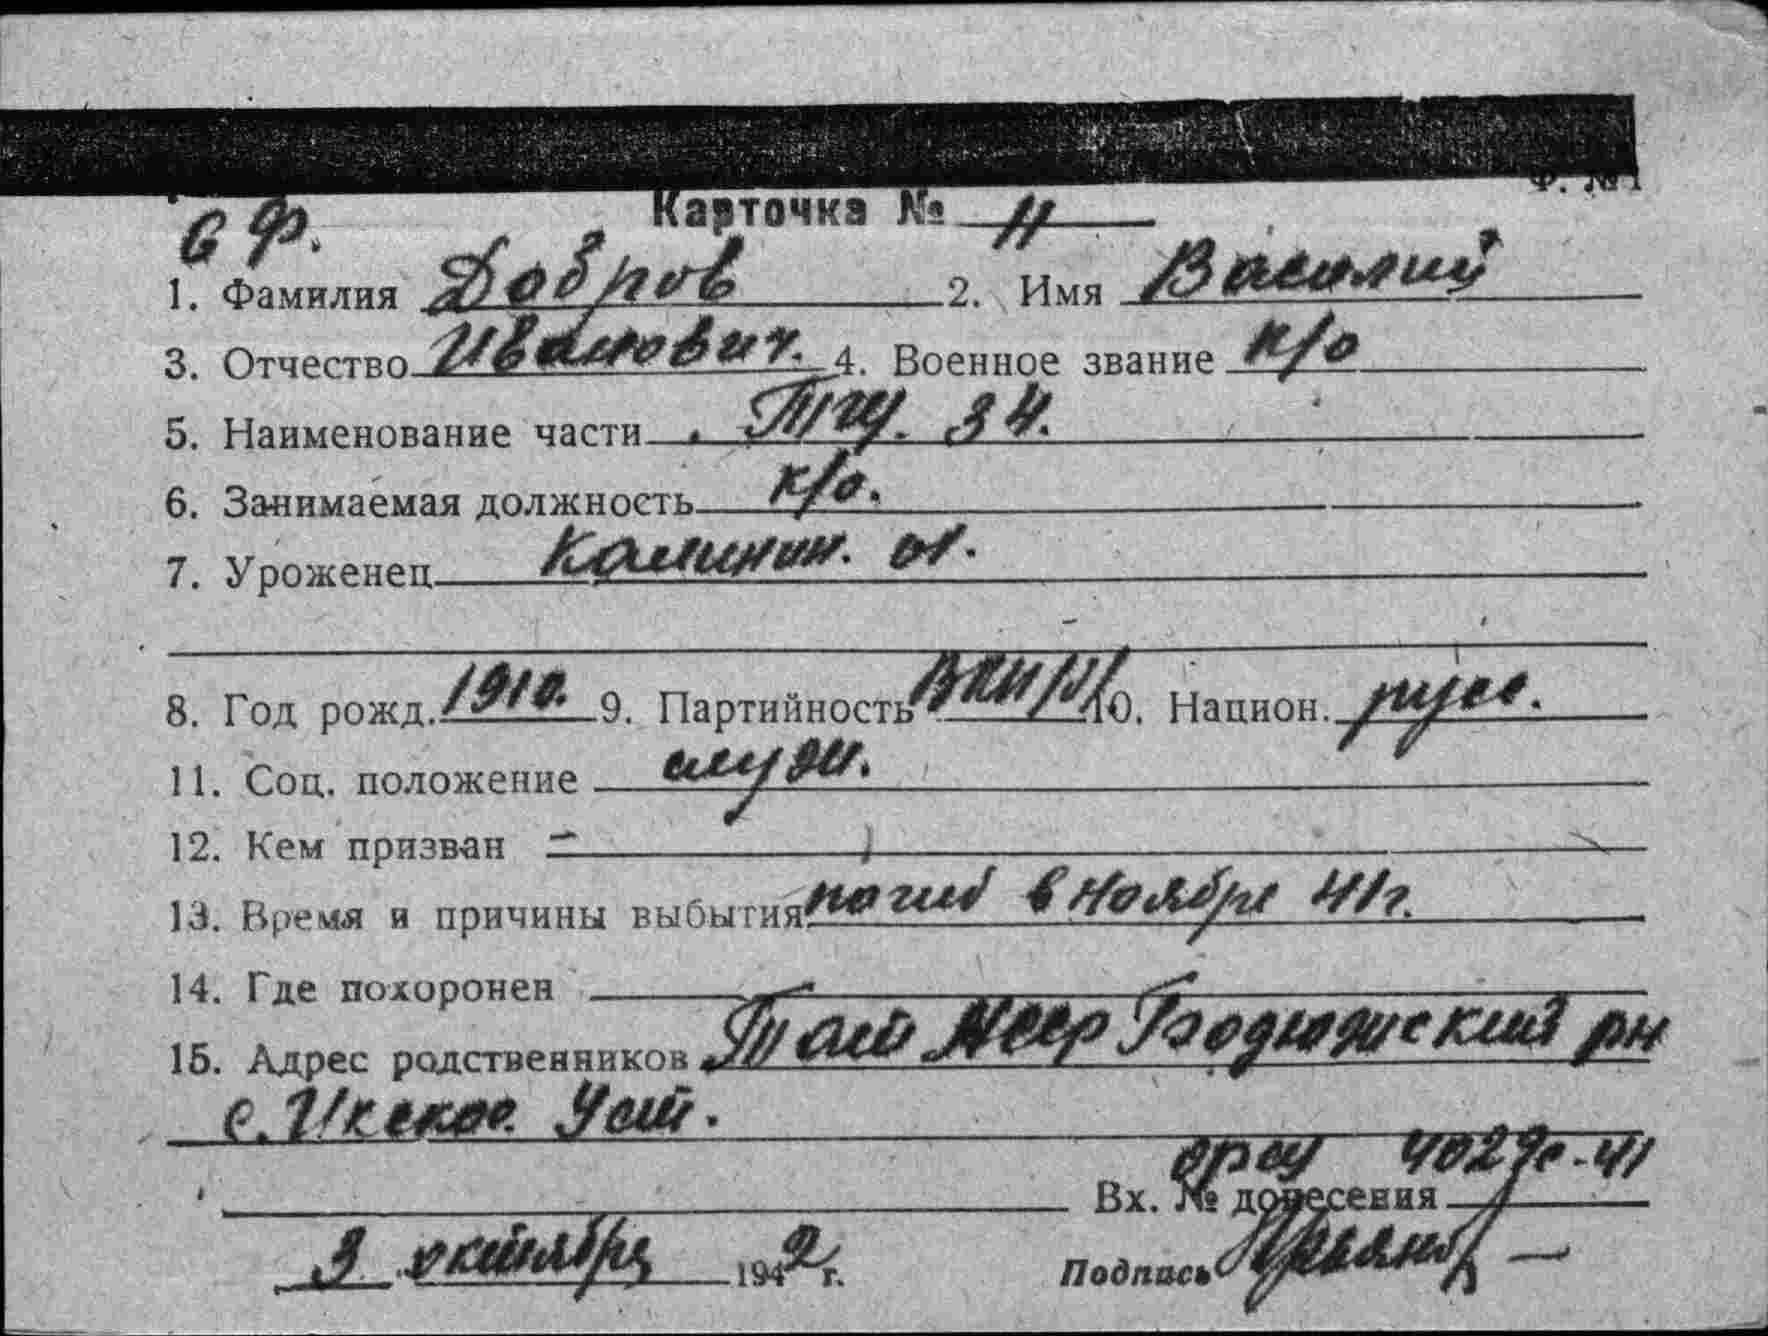 Ф. № 1
Карточка № 11
6 Ф.
1. Фамилия Добров 2. Имя Василий
3. Отчество Иванович. 4. Военное звание к/о
5. Наименование части 34.
6. Занимаемая должность к/о.
7. Уроженец Калинин. ол.
8. Год рожд. 1910. 9. Партийность ВКП/б/ 10. Национ. русс.
11. Соц. положение служ.
12. Кем призван –
13. Время и причины выбытия погиб в ноябре 41г.
14. Где похоронен
15. Адрес родственников Тат АССР рн
с. Икское Уст.
4029с-41
Вх. № донесения
3 октября 1942 г. Подпись